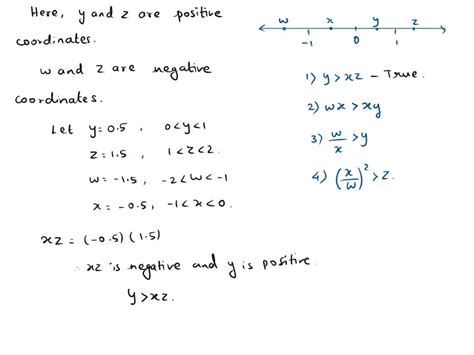 Here, y and z are positive
coordinates.
w and z are negative
coordinates.
Let y=0.5, 0<y<1
z=1.5, 1<z<2.
w=-1.5, -2<w<-1
x=-0.5, -1<x<0.
xz = (-0.5)(1.5)
∴ xz is negative and y is positive.
y>xz.
w x y z
-1 0 1
1) y>xz - True.
2) wx > xy
3) w/x > y
4) (x/w)² > z.